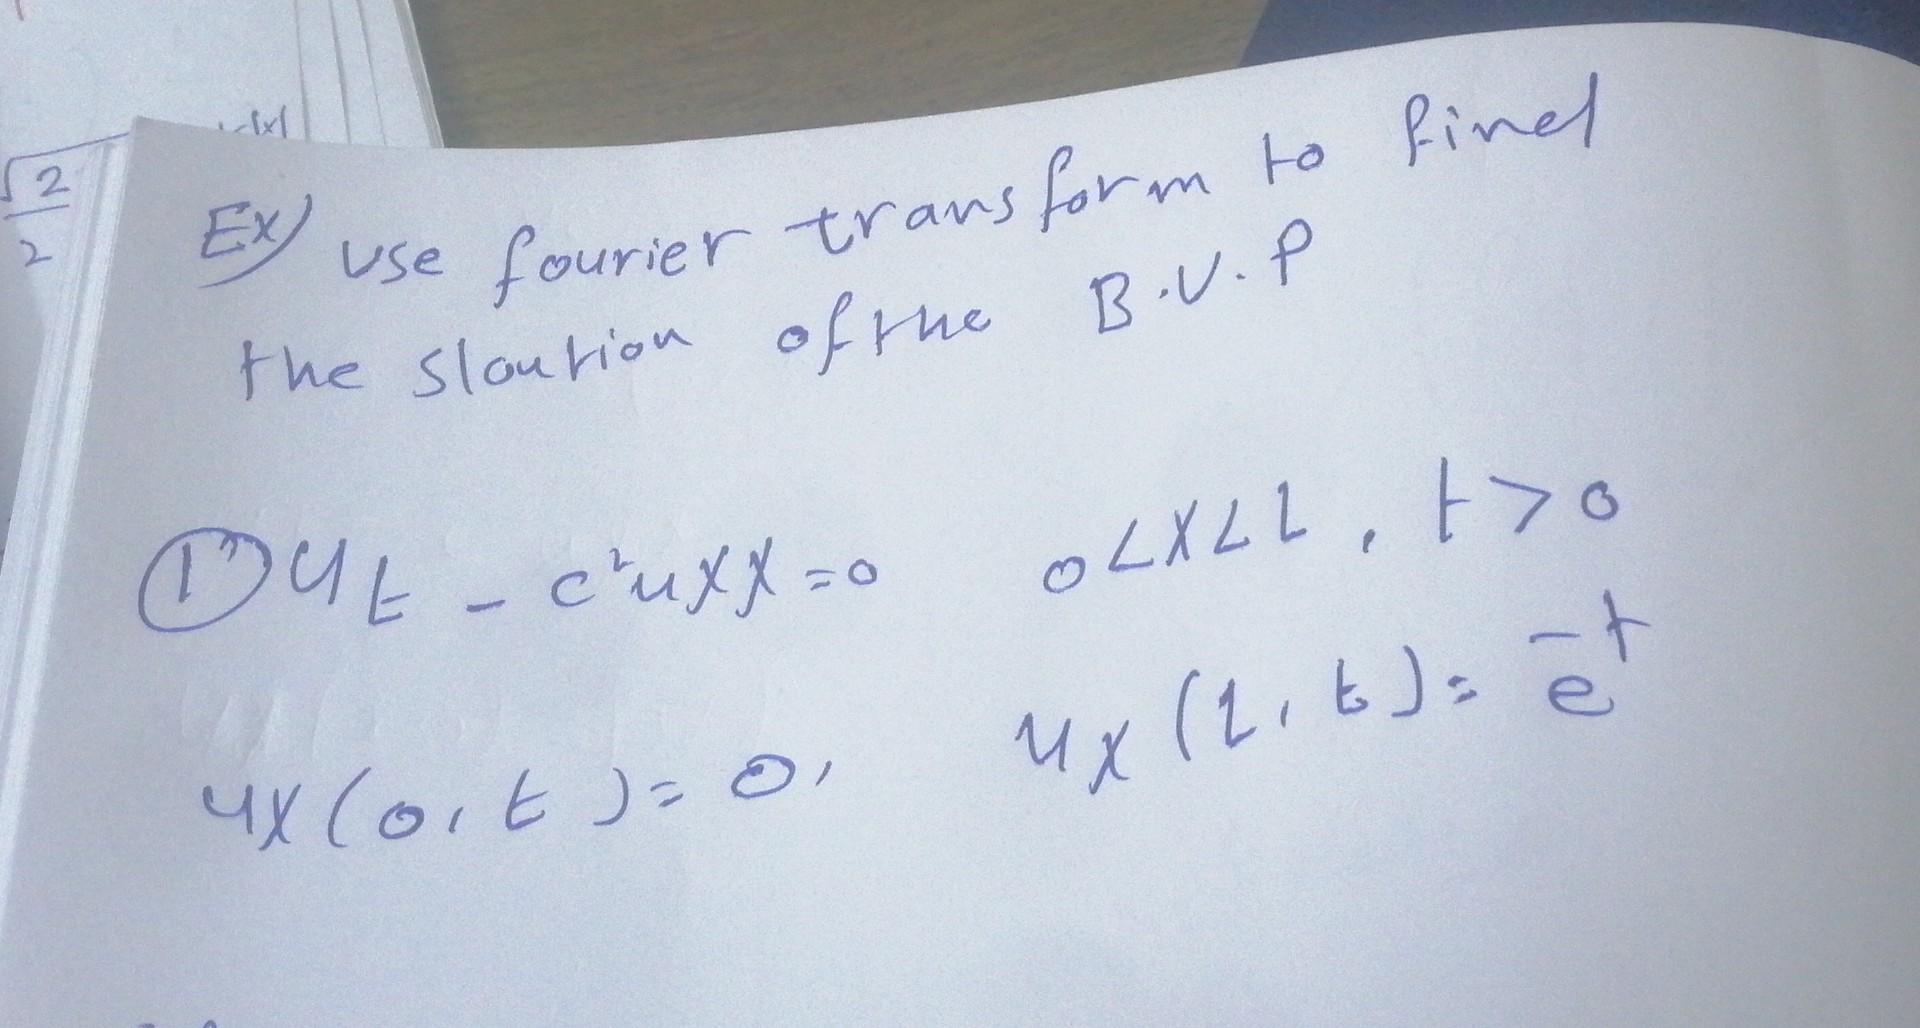 √2
2
Ex) use fourier transform to find
the sloution of the B.V.P
① u_t - c²uxx = 0 0 < x < L, t > 0
ux(0, t) = 0, ux(L, t) = e^-t